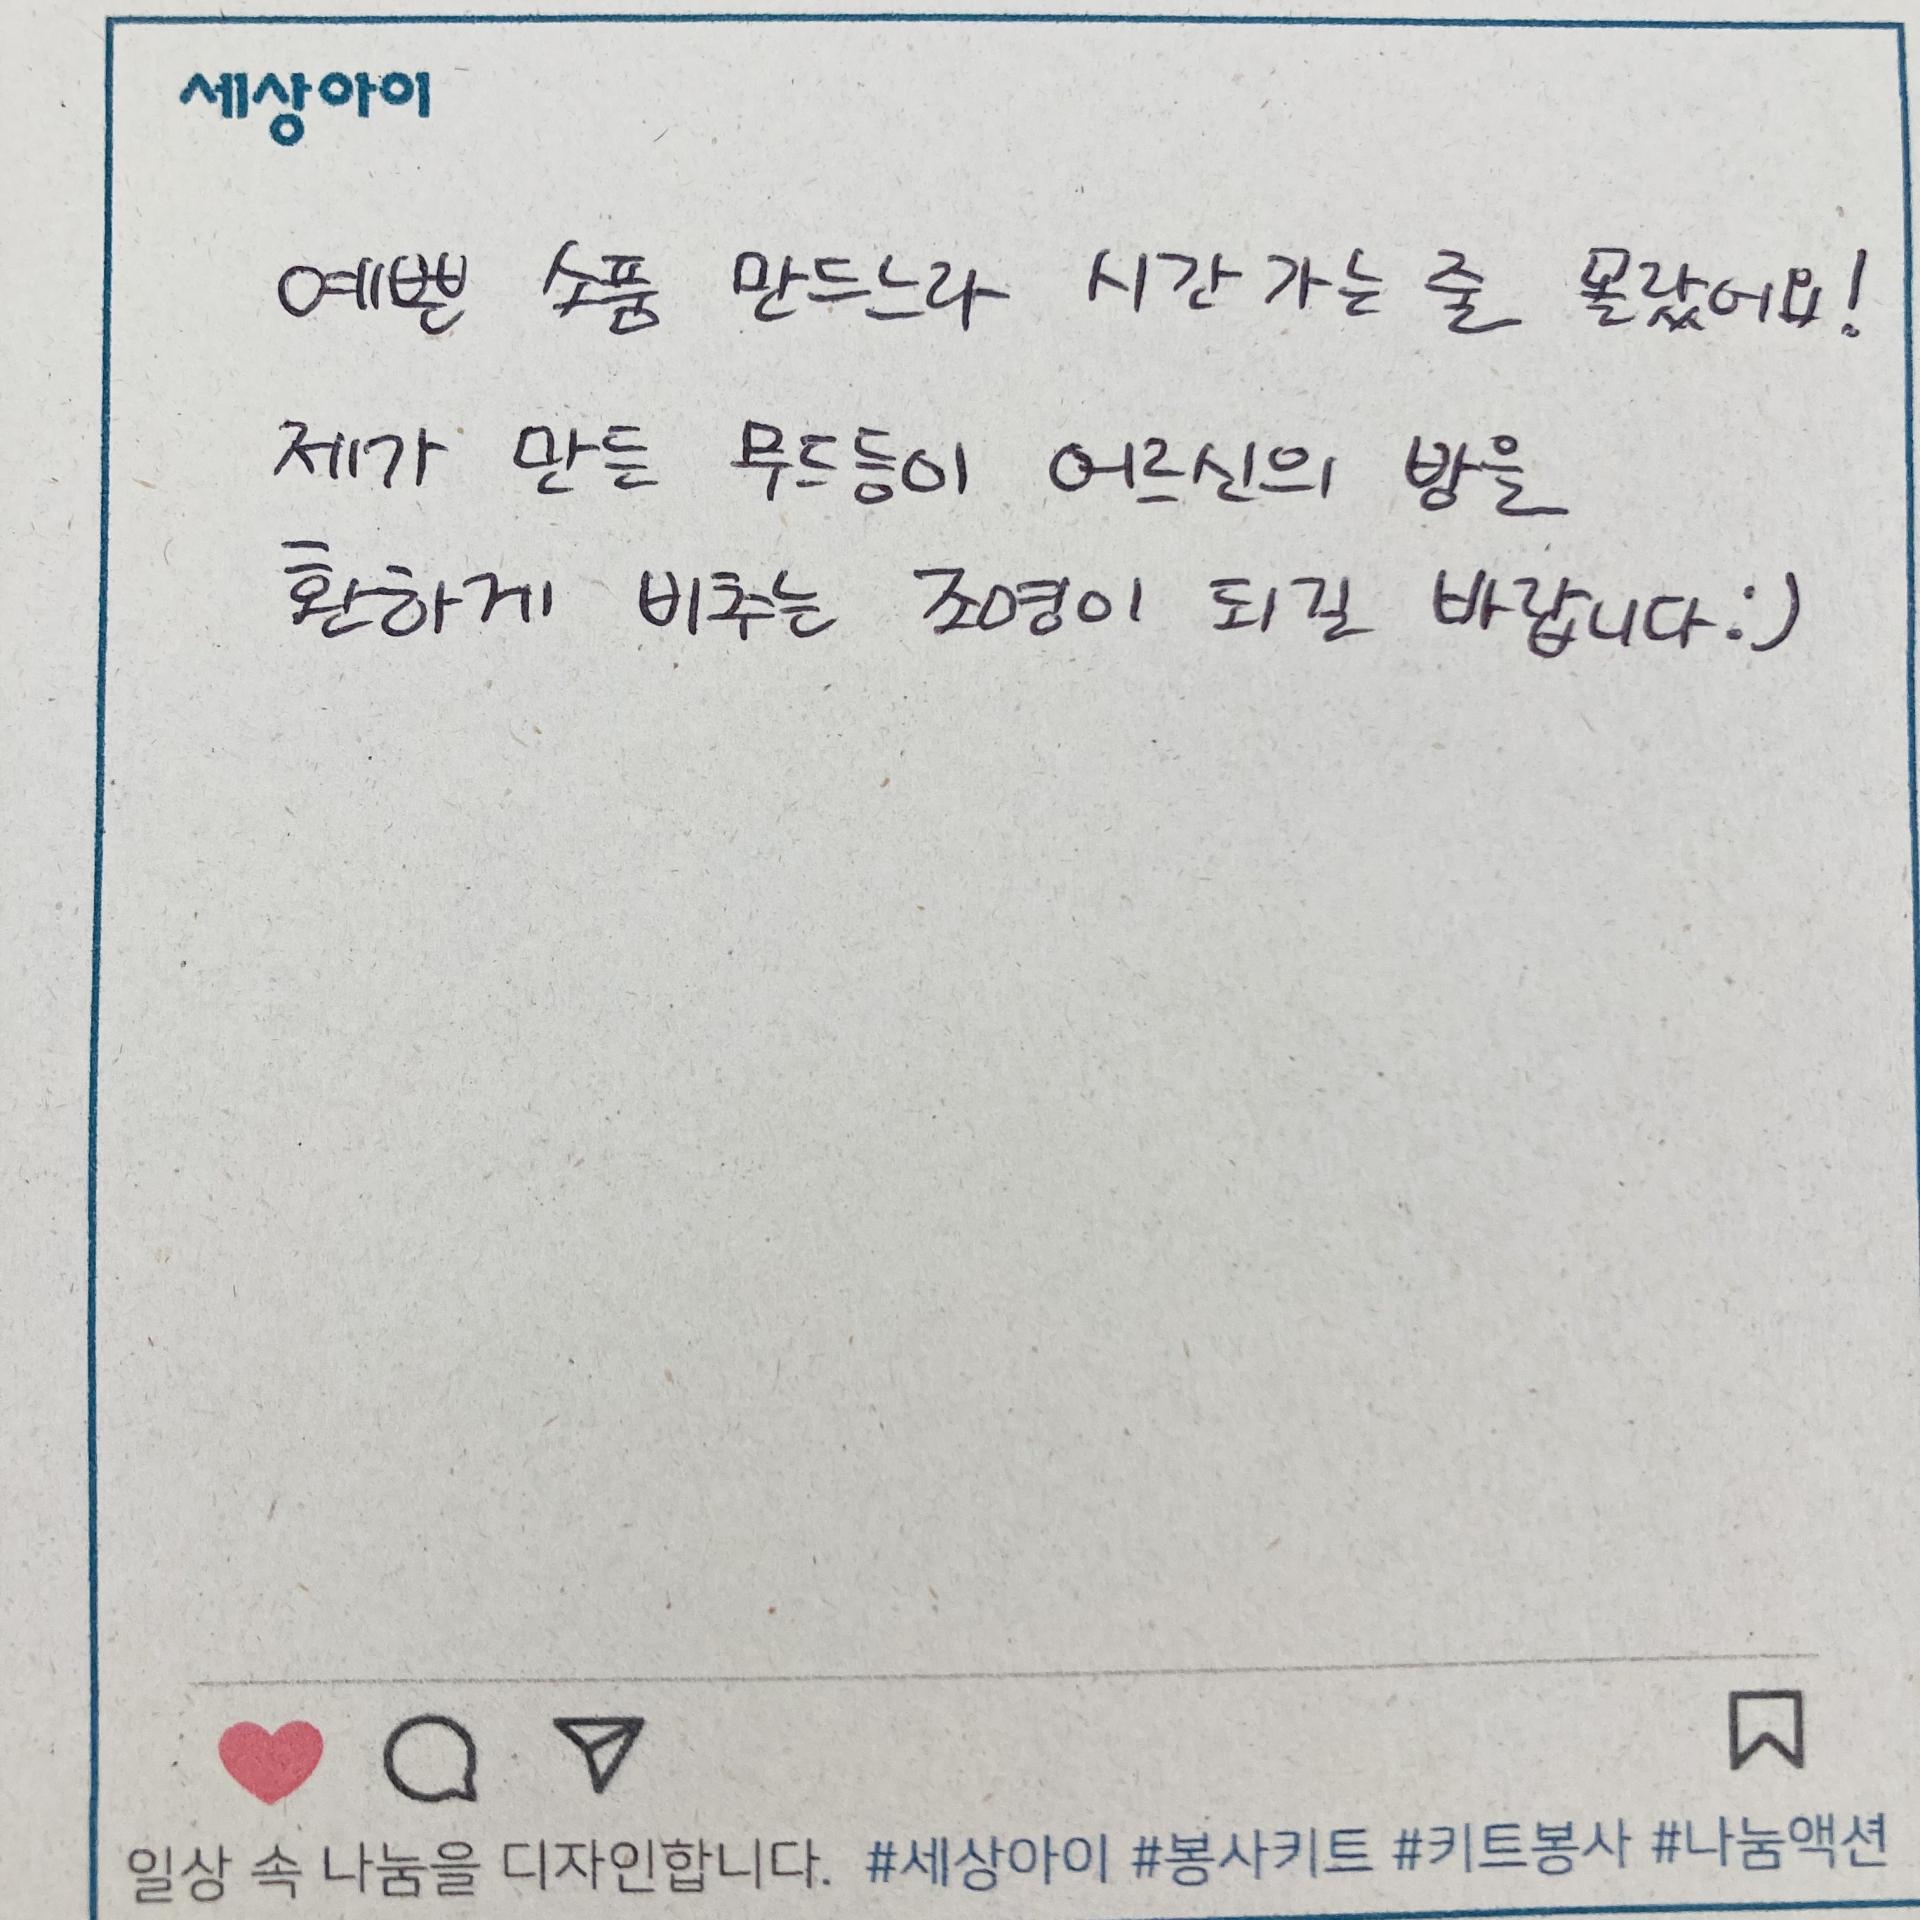 세상아이
예쁜 소품 만드느라 시간 가는 줄 몰랐어요!
제가 만든 무드등이 어르신의 방을
환하게 비추는 조명이 되길 바랍니다:)
일상 속 나눔을 디자인합니다. #세상아이 #봉사키트 #키트봉사 #나눔액션